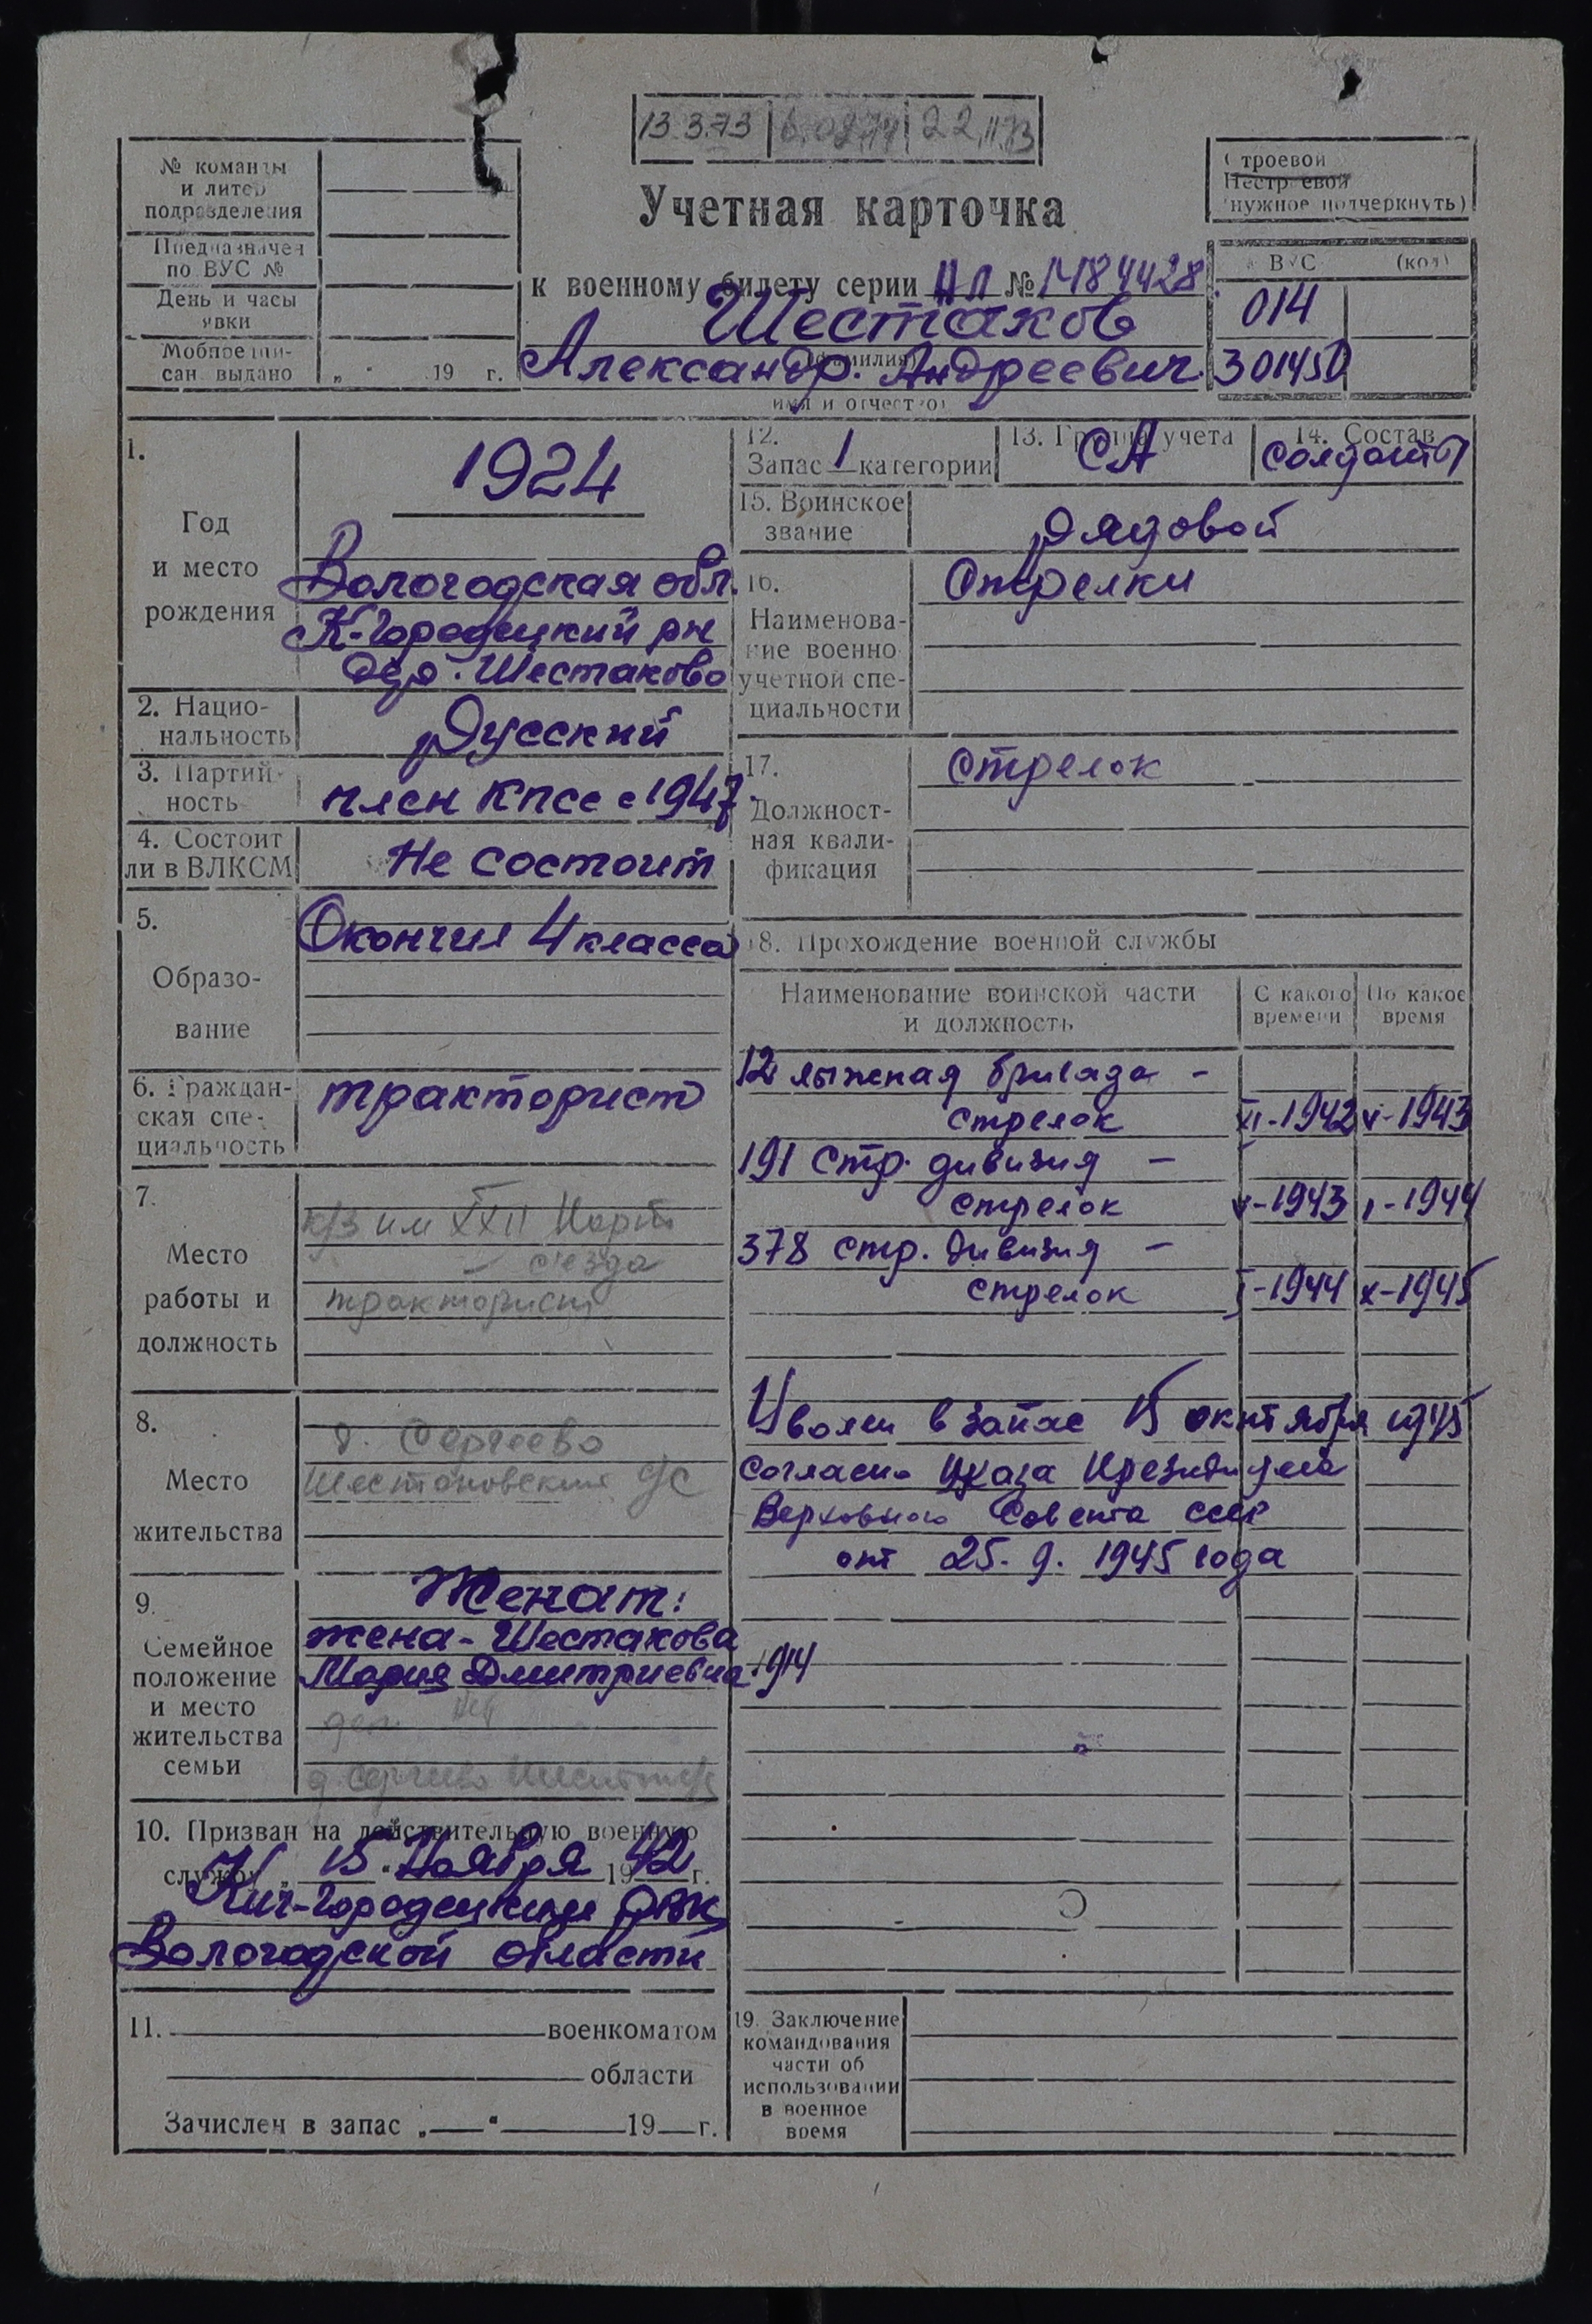 13.3.73 | 6.02.74 | 22.11.73
№ команды
и литер
подразделения
Предназначен
по ВУС №
День и часы
явки
Мобпредпи-
сан. выдано „ “ 19 г.
Учетная карточка
к военному билету серии НЛ № 1484428
Шестаков
(фамилия)
Александр. Андреевич.
имя и отчество)
Строевой
Нестроевой
(нужное подчеркнуть)
ВУС (код)
014
301450
1.
Год
и место
рождения
1924
Вологодская обл.
К-Городецкий рн
дер. Шестаково
2. Нацио-
нальность
Русский
3. Партий-
ность
член КПСС с 1947.
4. Состоит
ли в ВЛКСМ
Не состоит
5.
Образо-
вание
Окончил 4 класса
6. Граждан-
ская спе-
циальность
тракторист
7.
Место
работы и
должность
к/з им XXII Парт
съезда
тракторист
8.
Место
жительства
д. Сергеево
Шестаковский с/с
9.
Семейное
положение
и место
жительства
семьи
Женат:
жена - Шестакова
Мария Дмитриевна 1914
д. Сергеево
10. Призван на действительную военную
службу „ 15 “ Ноября 1942 г.
Кич-Городецким РВК
Вологодской области
11. военкоматом
области
Зачислен в запас „ “ 19 г.
12.
Запас 1 категории
13. Группа учета
СА
14. Состав
солдаты
15. Воинское
звание
рядовой
16.
Наименова-
ние военно
учетной спе-
циальности
Стрелки
17.
Должност-
ная квали-
фикация
стрелок
18. Прохождение военной службы
Наименование воинской части
и должность
С какого
времени
По какое
время
12 лыжная бригада -
стрелок XI-1942 V-1943
191 стр. дивизия -
стрелок V-1943 I-1944
378 стр. дивизия -
стрелок I-1944 X-1945
Уволен в запас 15 октября 1945
согласно Указа Президиума
Верховного Совета СССР
от 25.9.1945 года
19. Заключение
командования
части об
использовании
в военное
время